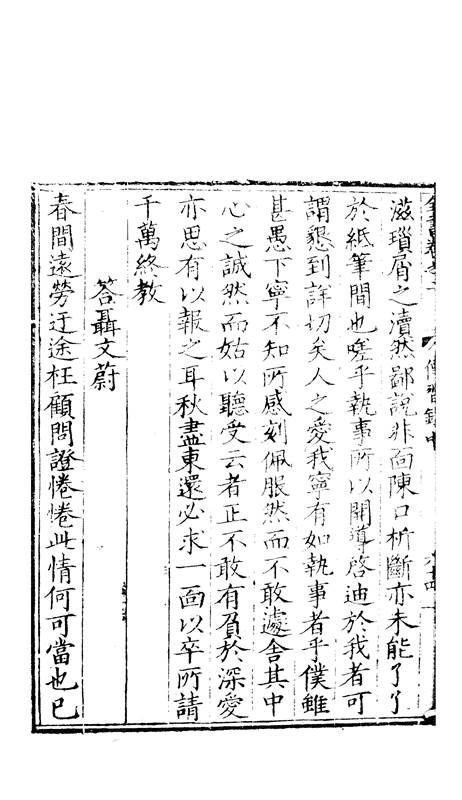 傳習錄中
滋瑣屑之瀆然鄙說非面陳口析斷亦未能了了
於紙筆間也嗟乎執事所以開導啓迪於我者可
謂懇到詳切矣人之愛我寧有如執事者乎僕雖
甚愚下寧不知所感刻佩服然而不敢遽舍其中
心之誠然而姑以聽受云者正不敢有負於深愛
亦思有以報之耳秋盡東還必求一面以卒所請
千萬終教
答聶文蔚
春間遠勞迂途枉顧問證惓惓此情何可當也已